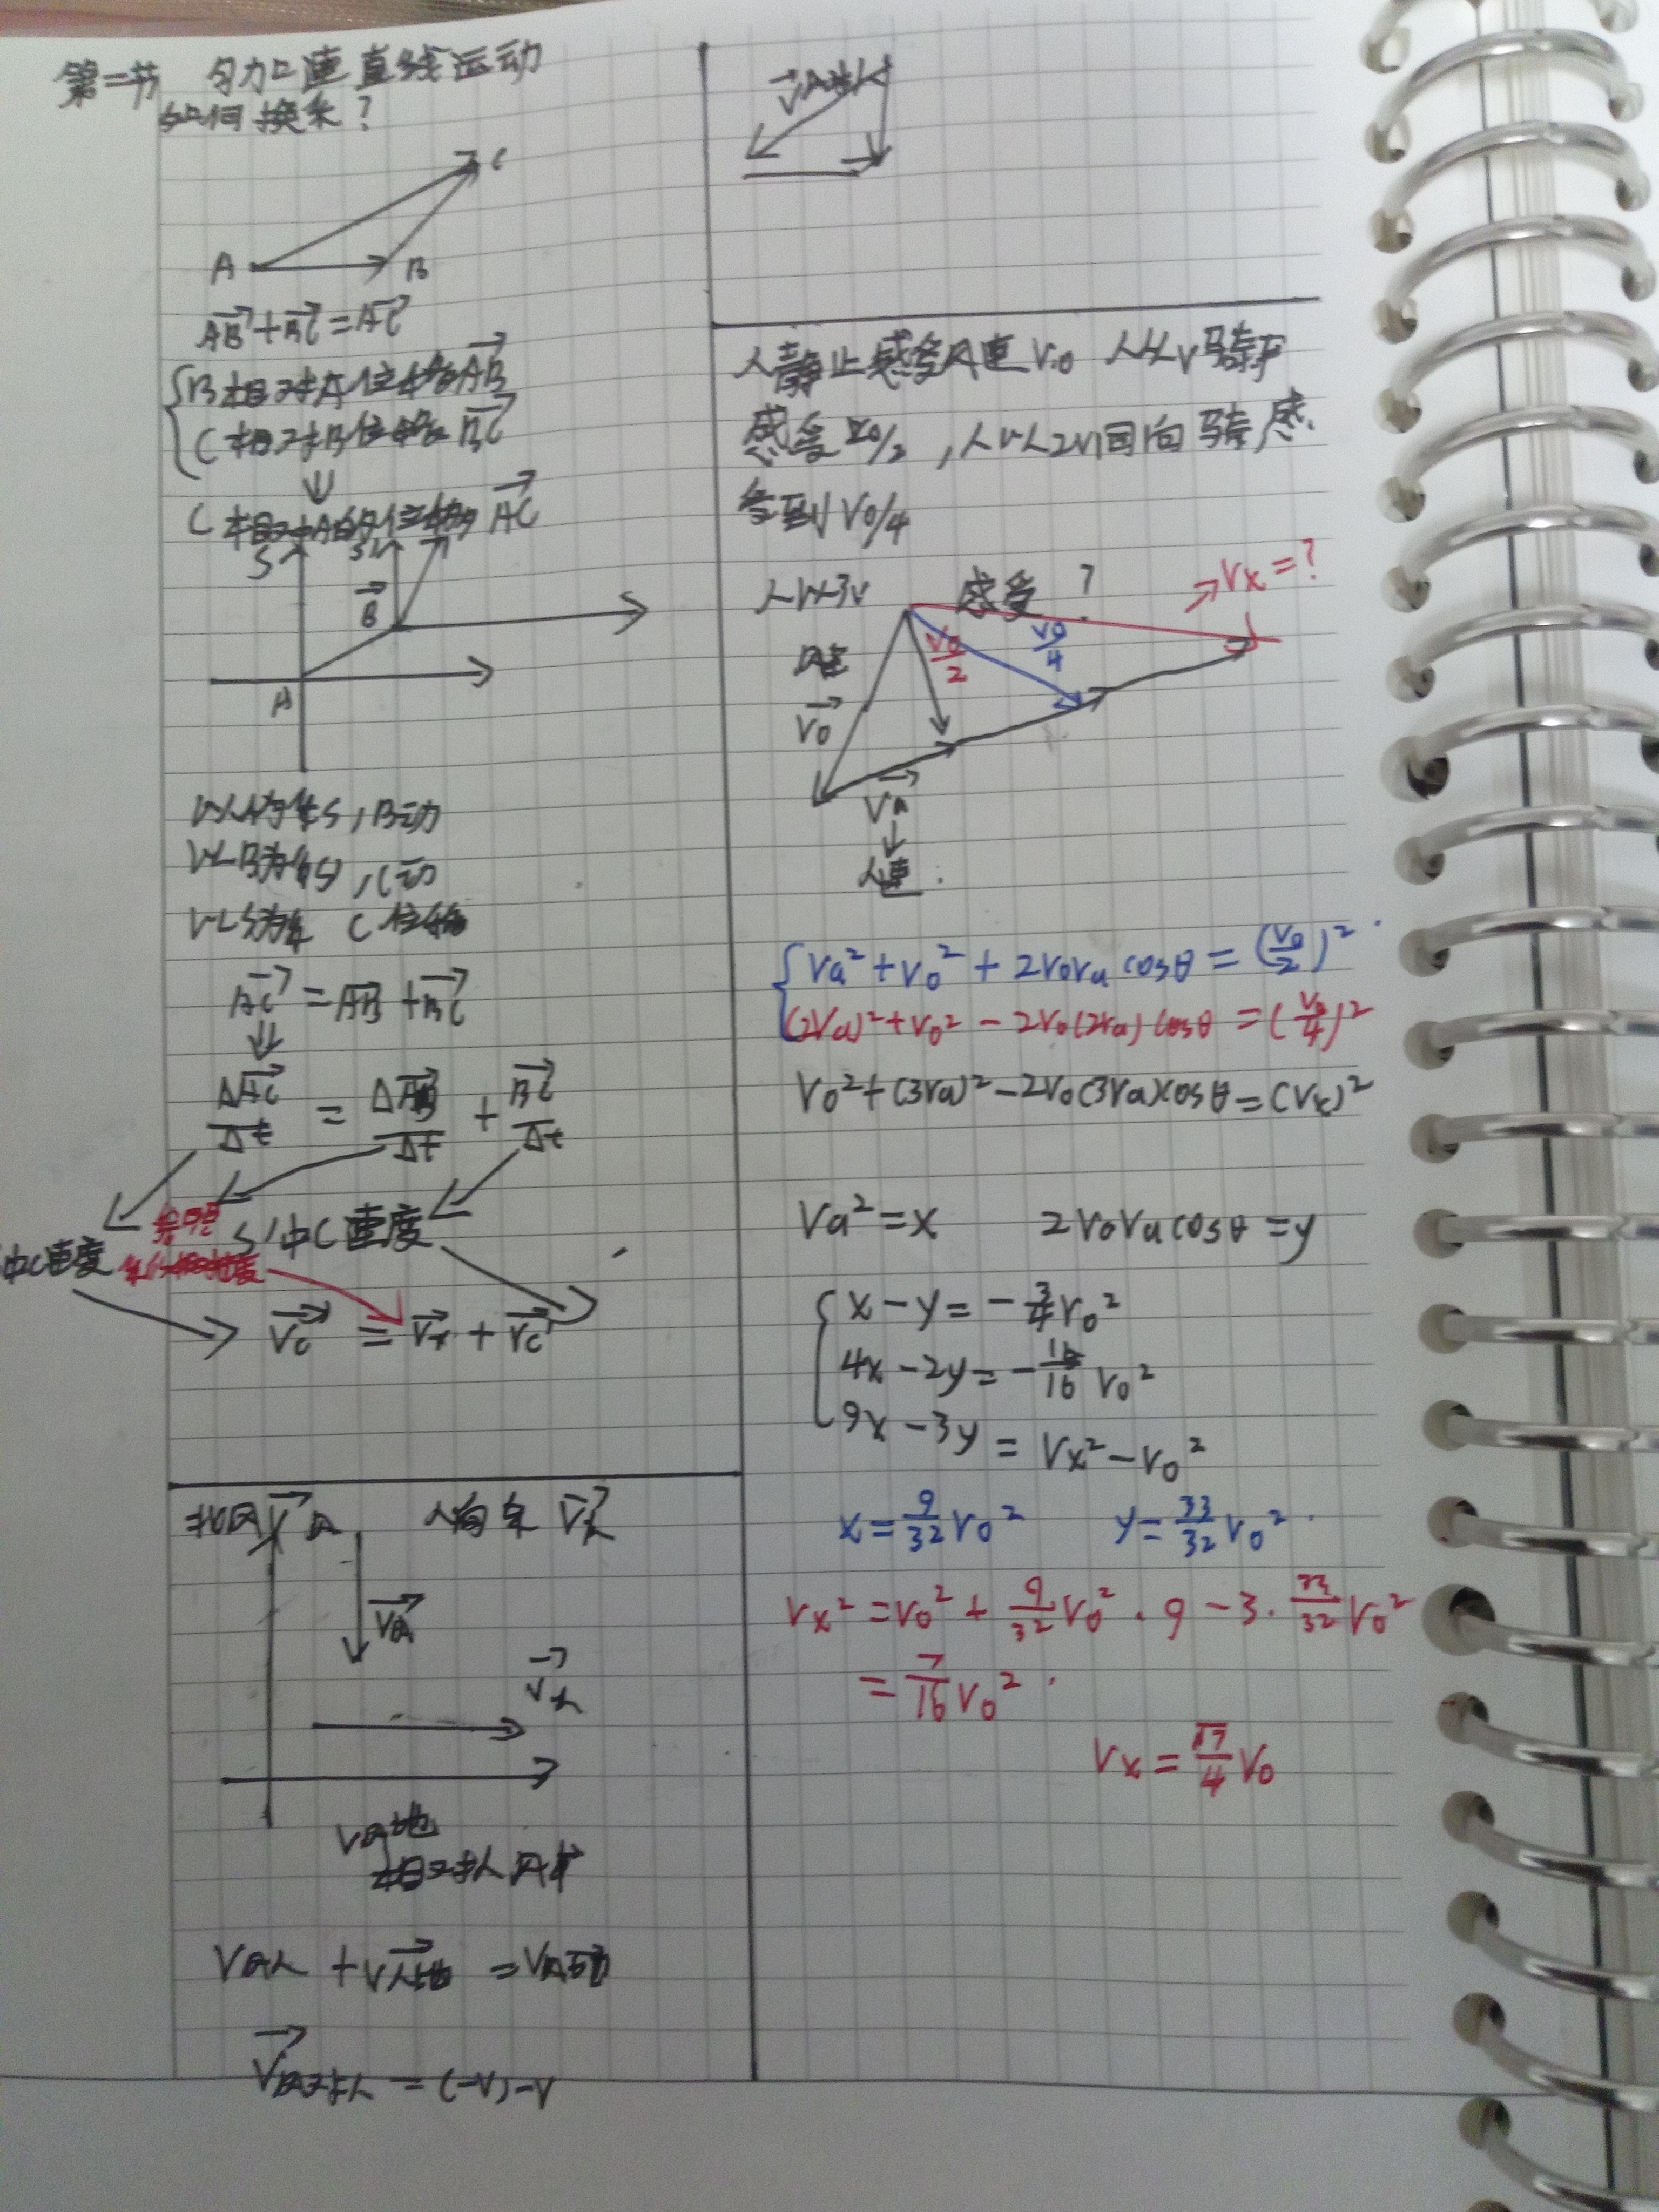 第一节 匀加速直线运动
如何换系?
C
A
B
AB+BC=AC
B相对A位移为AB
C相对B位移为BC
⇓
C相对A的位移为AC
S
S'
B
A
以A为系S,B动
以B为系S',C动
以S为系 C位移
AC=AB+BC
⇓
ΔAC/Δt = ΔAB/Δt + BC/Δt
S'中C速度
中C速度
Vc = Vx + Vc'
北风V风 人向东V人
V风
V人
V风地
相对人风速
V风人+V人地=V风地
V风对人=(-V)-V
V风对人
人静止感受风速V0 人以V骑车
感受V0/2,人以2V同向骑感
受到V0/4
人以3V 感受?
Vx=?
V0/2
V0/4
风速
V0
V人
↓
人速
Va²+V0²+2V0Va cosθ=(V0/2)²
(2Va)²+V0²-2V0(2Va)cosθ=(V0/4)²
V0²+(3Va)²-2V0(3Va)cosθ=(Vx)²
Va²=x 2V0Va cosθ=y
x-y=-3/4V0²
4x-2y=-15/16V0²
9x-3y=Vx²-V0²
x=9/32V0² y=33/32V0²
Vx²=V0²+9/32V0²·9-3·33/32V0²
=7/16V0²
Vx=√7/4V0